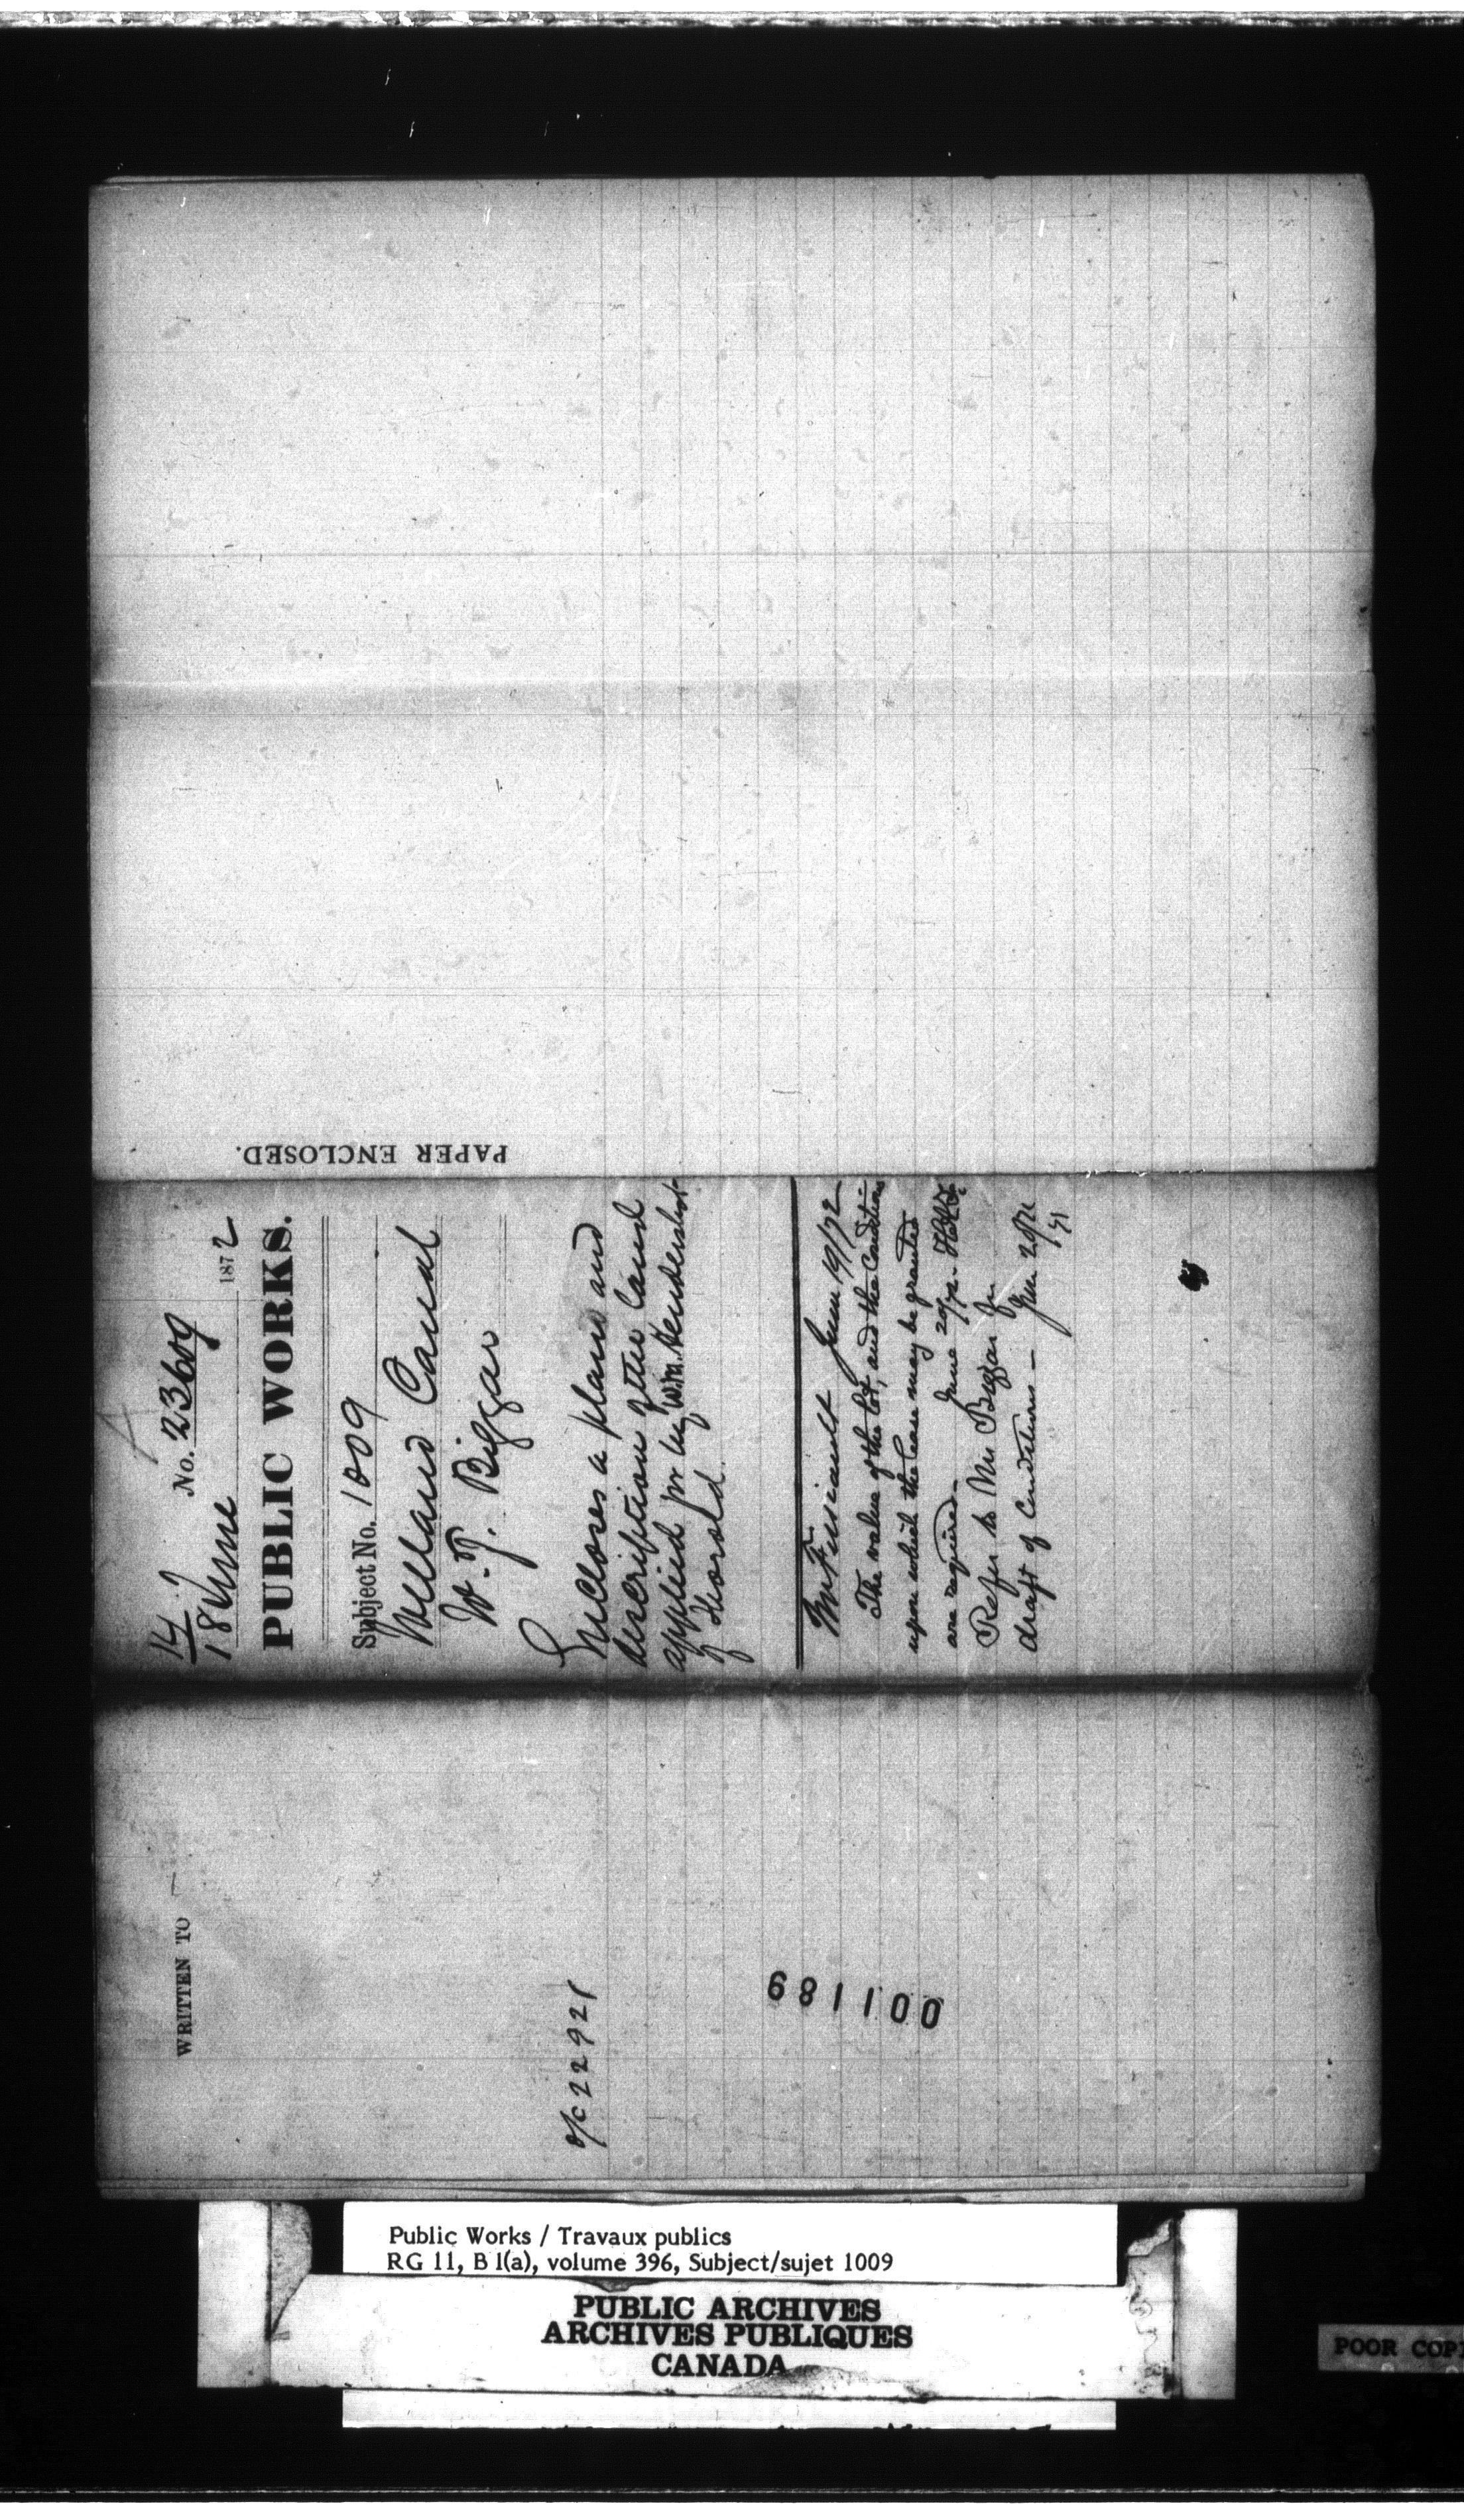 PAPER ENCLOSED.
No. 23609
14
18 June 1872
PUBLIC WORKS.
Subject No. 1009
Welland Canal
W. J. Biggar
Encloses a plan and
description of the land
applied for by Wm. Hendershot
of Thorold.
June 19/72
The value of the lot, and the conditions
upon which the lease may be granted
are required — June 20/72.
Refer to Mr Biggar for
draft of Conditions —
June 20/72
WRITTEN TO
o/c 22921
001189
Public Works / Travaux publics
RG 11, B 1(a), volume 396, Subject/sujet 1009
PUBLIC ARCHIVES
ARCHIVES PUBLIQUES
CANADA
POOR COP